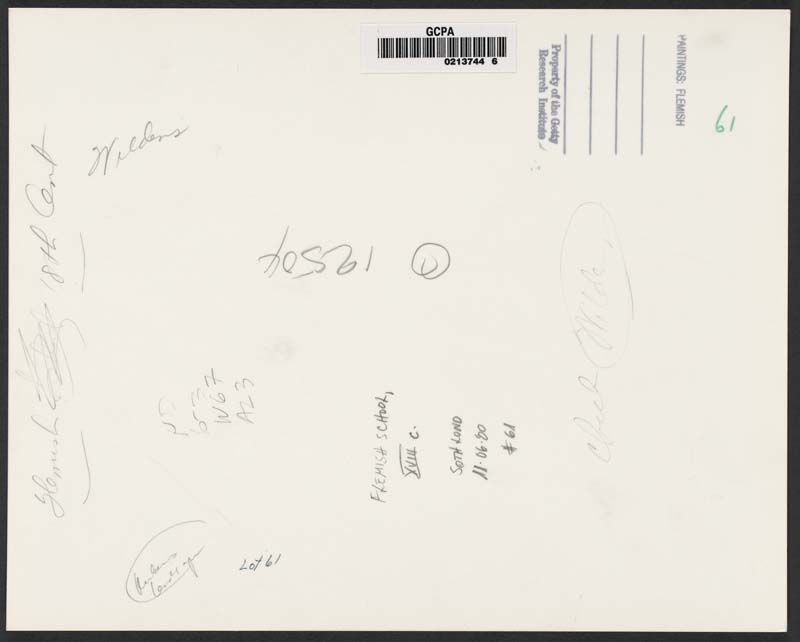 GCPA
0213744 6
Property of the Getty
Research Institute
PAINTINGS: FLEMISH
61
Wildens
Flemish
18th Cent
12504
1
ND
653
W67
A23
FLEMISH SCHOOL,
XVIII C.
SOTH LOND
11.06.80
#61
Check Wildens
Rubens
landscape
LOT 61